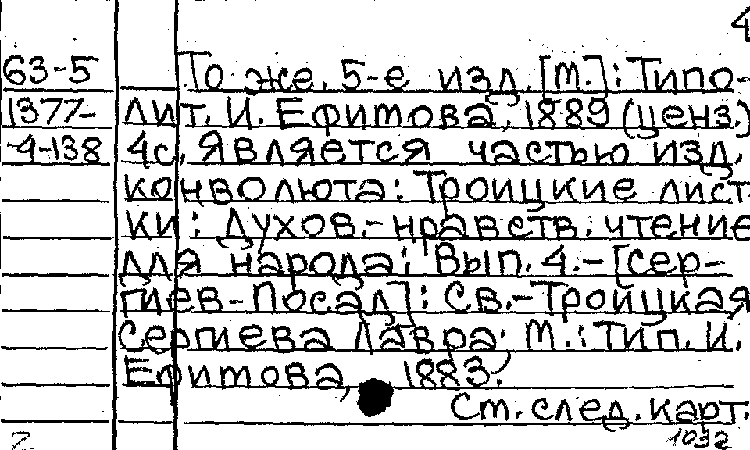 4
63-5 То же. 5-е изд. [М.]: Типо-
1377- лит. И. Ефимова, 1889 (ценз.)
-4-138 4с. Является частью изд.
конволюта: Троицкие лист
ки: Духов.-нравств. чтение
для народа: Вып. 4.-[Сер-
гиев-Посад]: Св.-Троицкая
Сергиева Лавра; М.: Тип. И.
Ефимова, 1883.
См. след. карт.
1032